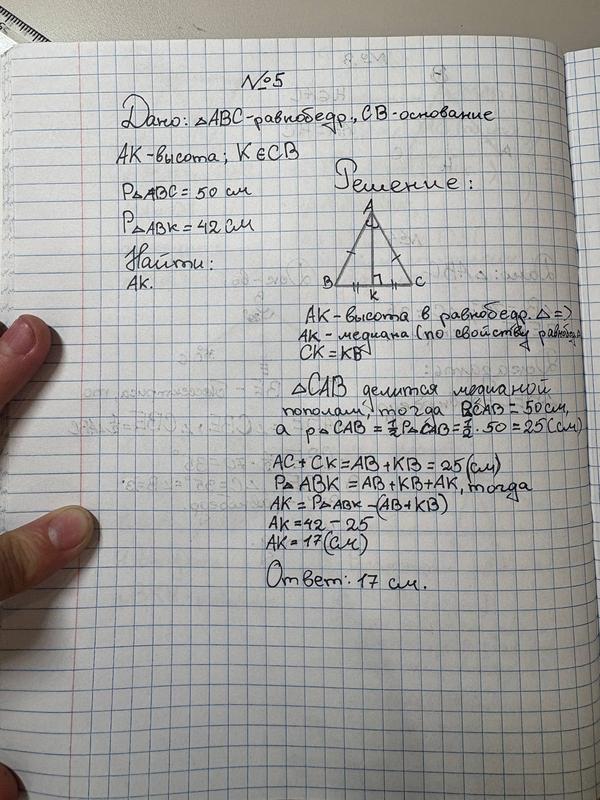 №5
Дано: △ABC-равнобедр., CB-основание
AK-высота; K∈CB
P△ABC= 50 см
P△ABK = 42 см
Найти:
AK.
Решение:
A
B
K
C
AK-высота в равнобедр. △ =>
AK-медиана (по свойству равнобедр
CK=KB
△CAB делится медианой
пополам, тогда P△CAB = 50см,
а p△CAB = 1/2 P△CAB = 1/2 · 50 = 25(см)
AC+CK=AB+KB = 25(см)
P△ABK = AB+KB+AK, тогда
AK = P△ABK -(AB+KB)
AK=42-25
AK=17(см)
Ответ: 17 см.